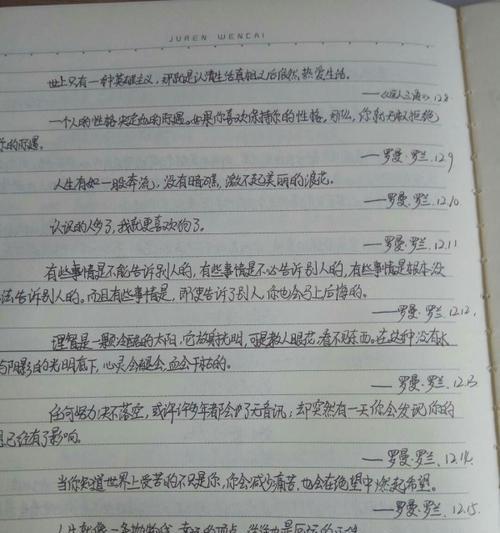 JUREN WENCAI
世上只有一种英雄主义，那就是认清生活真相之后依然热爱生活。
12.8
一个人的性格决定他的际遇。如果你喜欢保持你的性格，那么，你就无权拒绝
你的际遇。
—罗曼·罗兰.12.9
人生有如一股奔流，没有暗礁，激不起美丽的浪花。
—罗曼·罗兰.12.10
认识的人多了，我就更喜欢狗了。
—罗曼·罗兰.12.11
有些事情是不能告诉别人的，有些事情是不必告诉别人的，有些事情是根本没
法告诉别人的。而且有些事情是，即使告诉了别人，你也会马上后悔的。
—罗曼·罗兰.12.12.
理智是一颗冷酷的太阳，它放射光明，可是教人眼花，看不见东西。在这种没有水
与阴影的光明底下，心灵会褪色，血会干枯的。
—罗曼·罗兰.12.13
任何努力决不落空，或许许多年都会了无音讯；却突然有一天你会发现你的
思已经有了影响。
—罗曼·罗兰.12.14.
当你知道世界上受苦的不只是你，你会减少痛苦，也会在绝望中燃起希望。
—罗曼·罗兰.12.15.
人生就像一条抛物线，